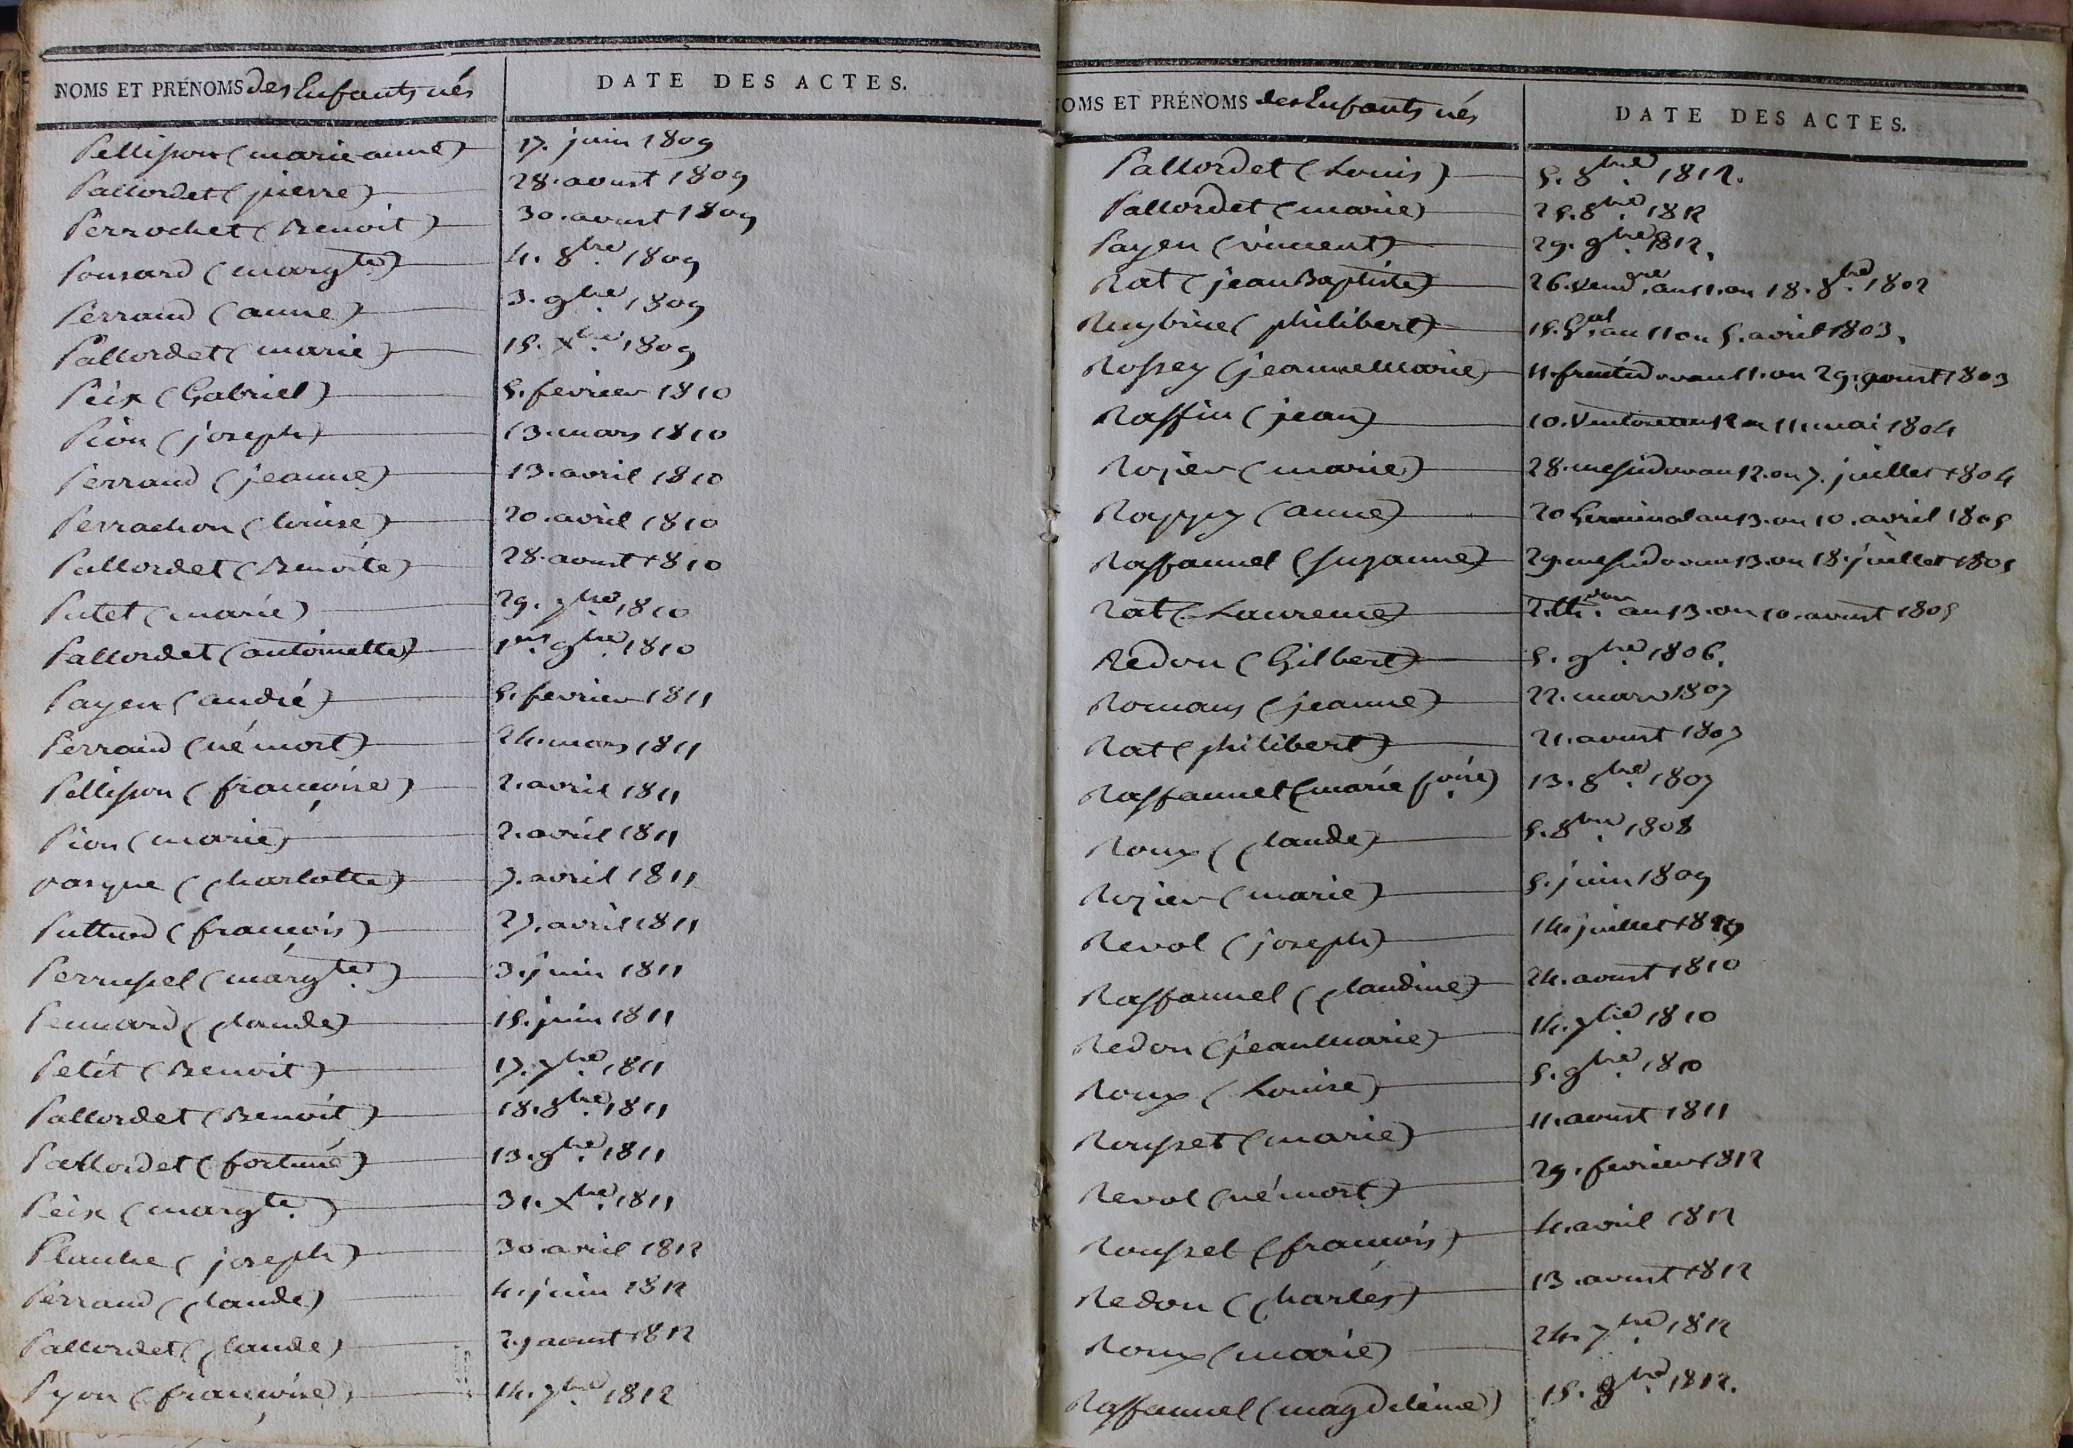 NOMS ET PRÉNOMS des Enfants nés DATE DES ACTES.
Pellisson (marie anne) 17. juin 1809
Pallordet (pierre) 28. aoust 1809
Perrochet (Benoit) 30. aoust 1809
Ponsard (margte.) 4. 8bre. 1809
Perraud (anne) 3. 9bre 1809
Pallordet (marie) 15. xbre. 1809
Peix (Gabriel) 5. fevrier 1810
Pion (joseph) 13. mars 1810
Perraud (jeanne) 13. avril 1810
Perrachon (louise) 20. avril 1810
Pallordet (Benoite) 28. aoust 1810
Putet (marie) 29. 7bre. 1810
Pallordet (antoinette) 1er. 9bre. 1810
Payen (andré) 5. fevrier 1811
Perraud (né mort) 24. mars 1811
Pellisson (françoise) 2. avril 1811
Pion (marie) 2. avril 1811
pasque (Charlotte) 7. avril 1811
(françois) 27. avril 1811
Perrussel (margte.) 3. juin 1811
Pennard (Claude) 15. juin 1811
Petit (Benoit) 17. 7bre. 1811
Pallordet (Benoit) 18. 8bre. 1811
Pallordet (fortuné) 13. 9bre. 1811
Peix (margte.) 31. xbre. 1811
Planche (joseph) 30 avril 1812
Perraud (Claude) 4. juin 1812
Pallordet (Claude) 27 aoust 1812
Pyon (françoise) 14. 7bre. 1812
NOMS ET PRÉNOMS des Enfants nés DATE DES ACTES.
Pallordet (Louis) 5. 8bre. 1812.
Pallordet (marie) 25. 8bre. 1812
Payen (vincent) 29. 9bre. 1812.
Rat (jean Baptiste) 26. vendre. an 11. ou 18. 8bre. 1802
(philibert) 15. Gal. an 11 ou 5. avril 1803.
Rossey (jeanne Marie) 11. fructidor an 11. ou 29. aoust 1803
Raffin (jean) 10. an 12 ou 11. mai 1804
Rozier (marie) 28. messidor an 12. ou 7. juillet 1804
(anne) 20 Germinal an 13. ou 10. avril 1805
Raffannel (suzanne) 29. messidor an 13. ou 18. juillet 1805
Rat (Laurence) an 13. ou 10. aoust 1805
Redon (Gilbert) 5. 9bre. 1806.
Romans (jeanne) 22. mars 1807
Rat (philibert) 21. aoust 1807
Raffannel (marie) 13. 8bre. 1807
Roux (Claude) 5. 8bre. 1808
Rozier (marie) 5. juin 1809
Revol (joseph) 14. juillet 1809
Raffannel (Claudine) 24. aoust 1810
Redon (jean Marie) 14. 7bre 1810
Roux (Louise) 5. 9bre. 1810
Rousset (marie) 11. aoust 1811
Revol (né mort) 29. fevrier 1812
Roussel (françois) 4. avril 1812
Redon (Charles) 13. aoust 1812
Roux (marie) 24. 7bre. 1812
Raffannel (magdeleine) 15. 9bre. 1812.